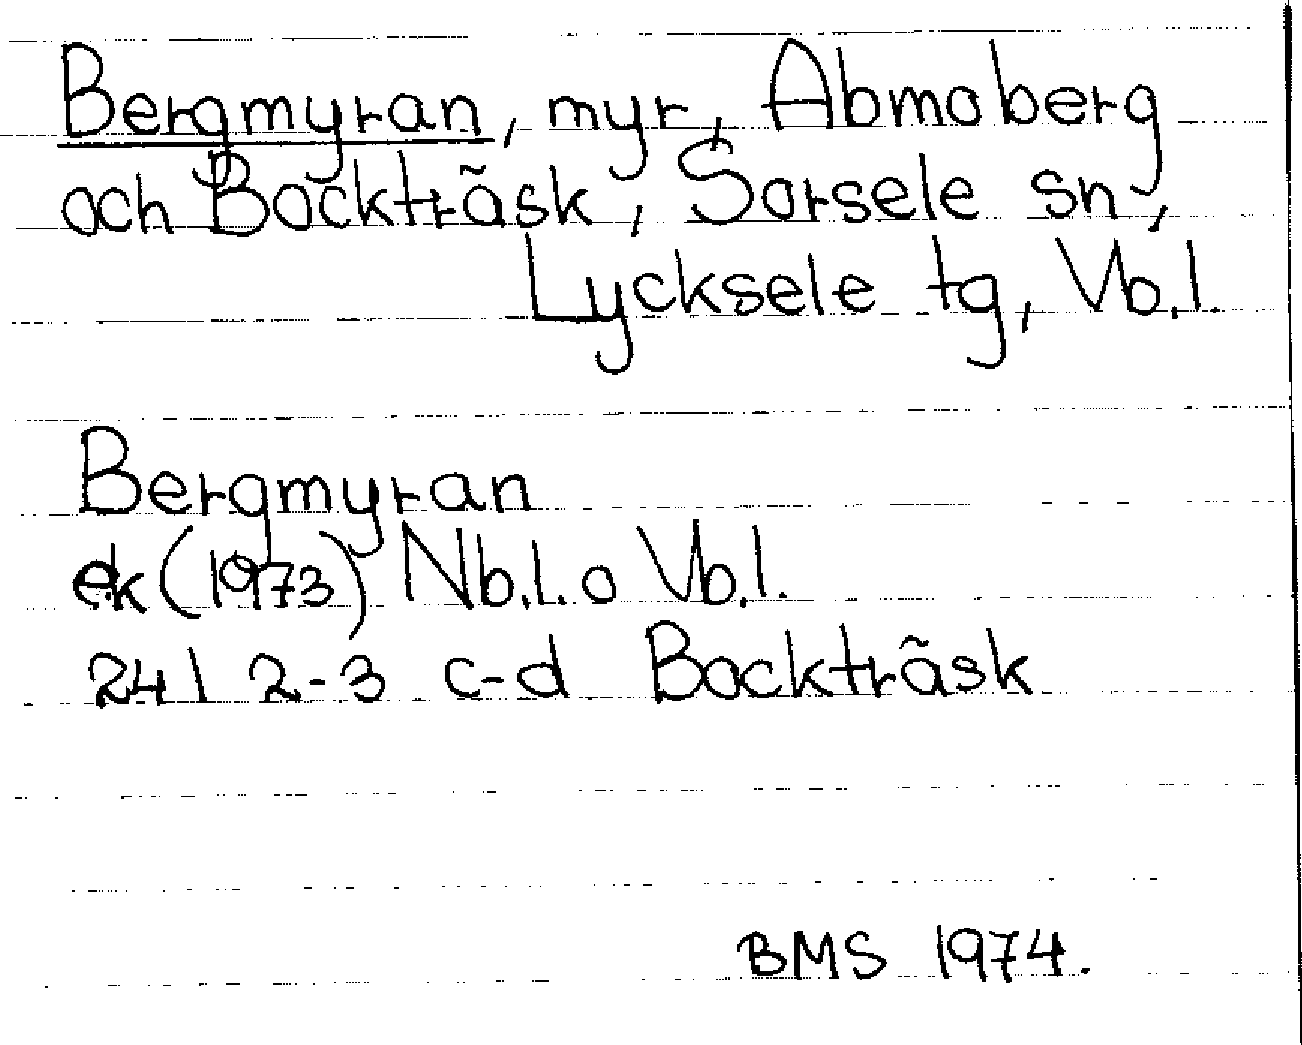 Bergmyran, myr, Abmoberg
och Bockträsk, Sorsele sn,
Lycksele tg, Vb.l.
Bergmyran
ek (1973) Nb.l. o Vb.l.
24I 2-3 c-d Bockträsk
BMS 1974.